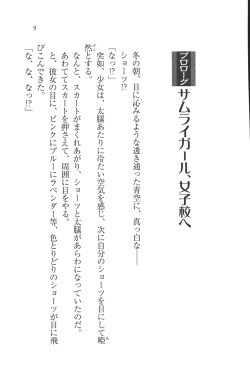 プロローグ サムライガール、女子校へ
冬の朝、目に沁みるような透き通った青空に、真っ白な――
ショーツ!?
「なっ!?」
突如、少女は、太腿あたりに冷たい空気を感じ、次に自分のショーツを目にして唖
然とする。
なんと、スカートがまくれあがり、ショーツと太腿があらわになっていたのだ。
あわててスカートを押さえて、周囲に目をやる。
と、彼女の目に、ピンクにブルーにラベンダー等、色とりどりのショーツが目に飛
びこんできた。
「な、な、なっ!?」
9